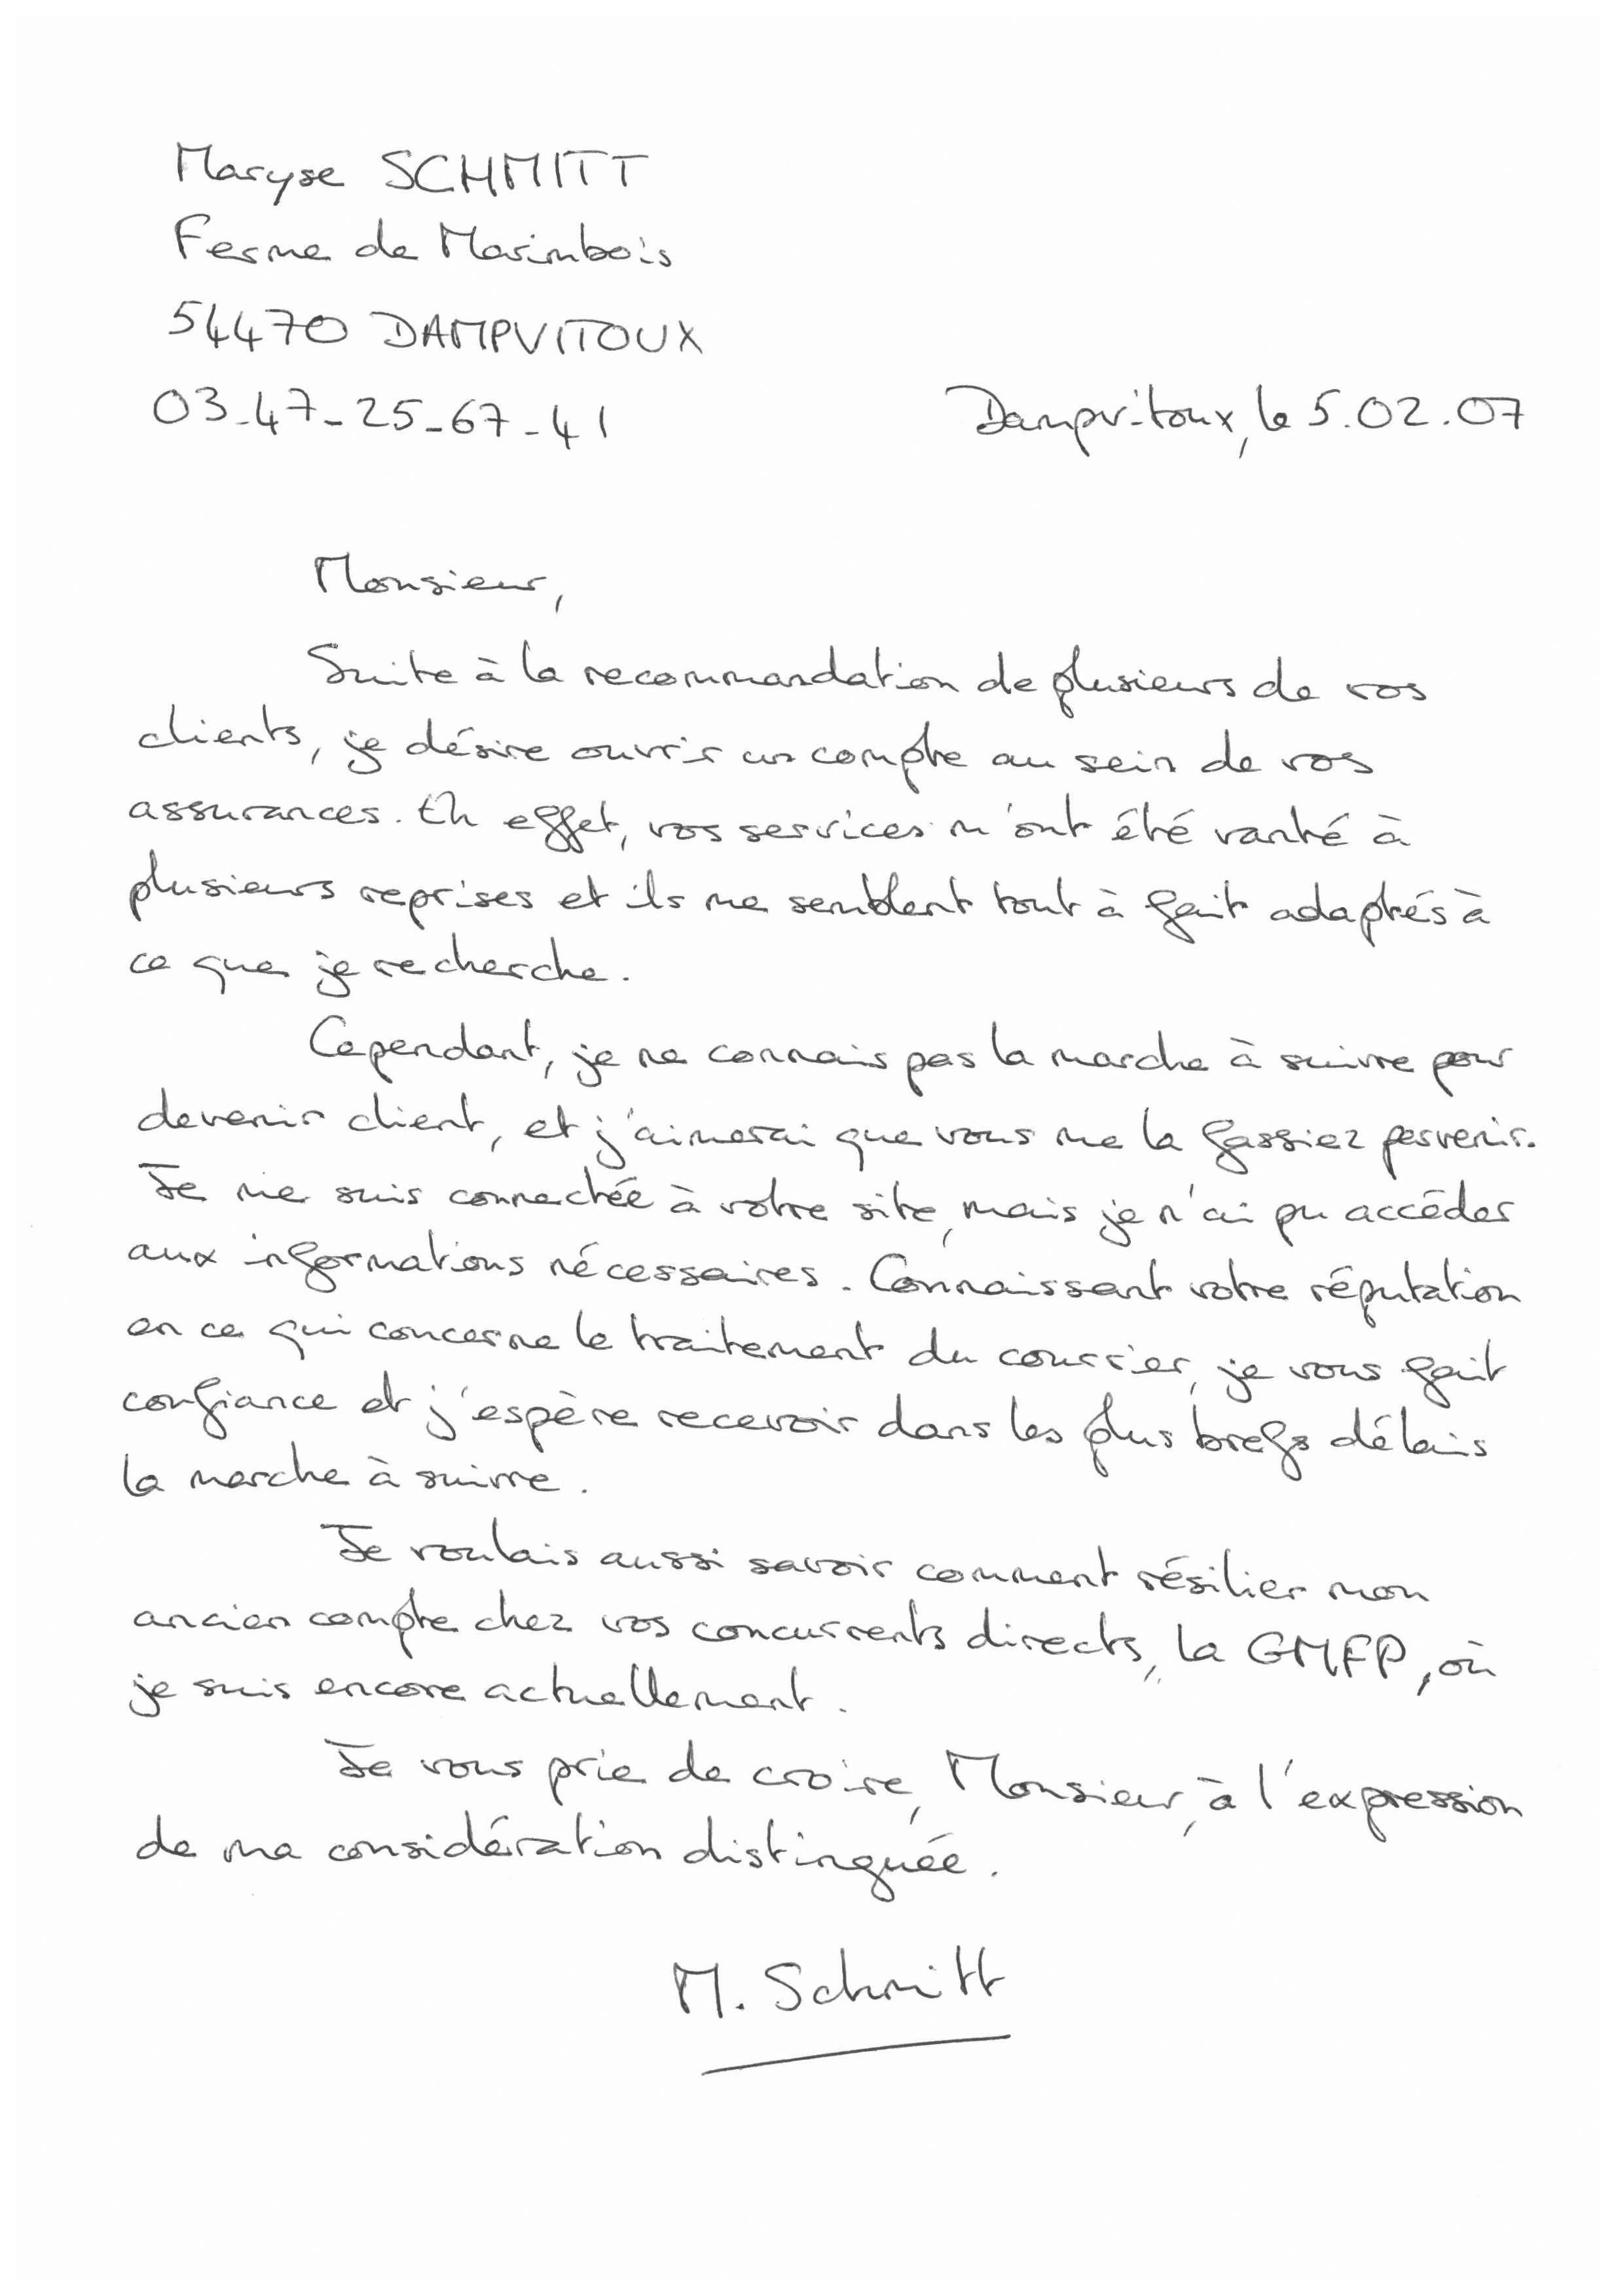 Maryse SCHMITT
Ferme de Marimbois
54470 DAMPVITOUX
03-47-25-67-41
Dampvitoux, le 5.02.07
Monsieur,
Suite à la recommandation de plusieurs de vos
clients, je désire ouvrir un compte au sein de vos
assurances. En effet, vos services m'ont été vanté à
plusieurs reprises et ils me semblent tout à fait adaptés à
ce que je recherche.
Cependant, je ne connais pas la marche à suivre pour
devenir client, et j'aimerai que vous me la fassiez parvenir.
Je me suis connectée à votre site, mais je n'ai pu accéder
aux informations nécessaires. Connaissant votre réputation
en ce qui concerne le traitement du courrier, je vous fait
confiance et j'espère recevoir dans les plus brefs délais
la marche à suivre.
Je voulais aussi savoir comment résilier mon
ancien compte chez vos concurrents directs, la GMFP, où
je suis encore actuellement.
Je vous prie de croire, Monsieur, à l'expression
de ma considération distinguée.
M. Schmitt